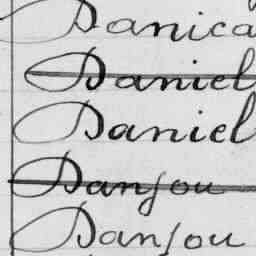 Danica
Daniel
Daniel
Danjou
Danjou